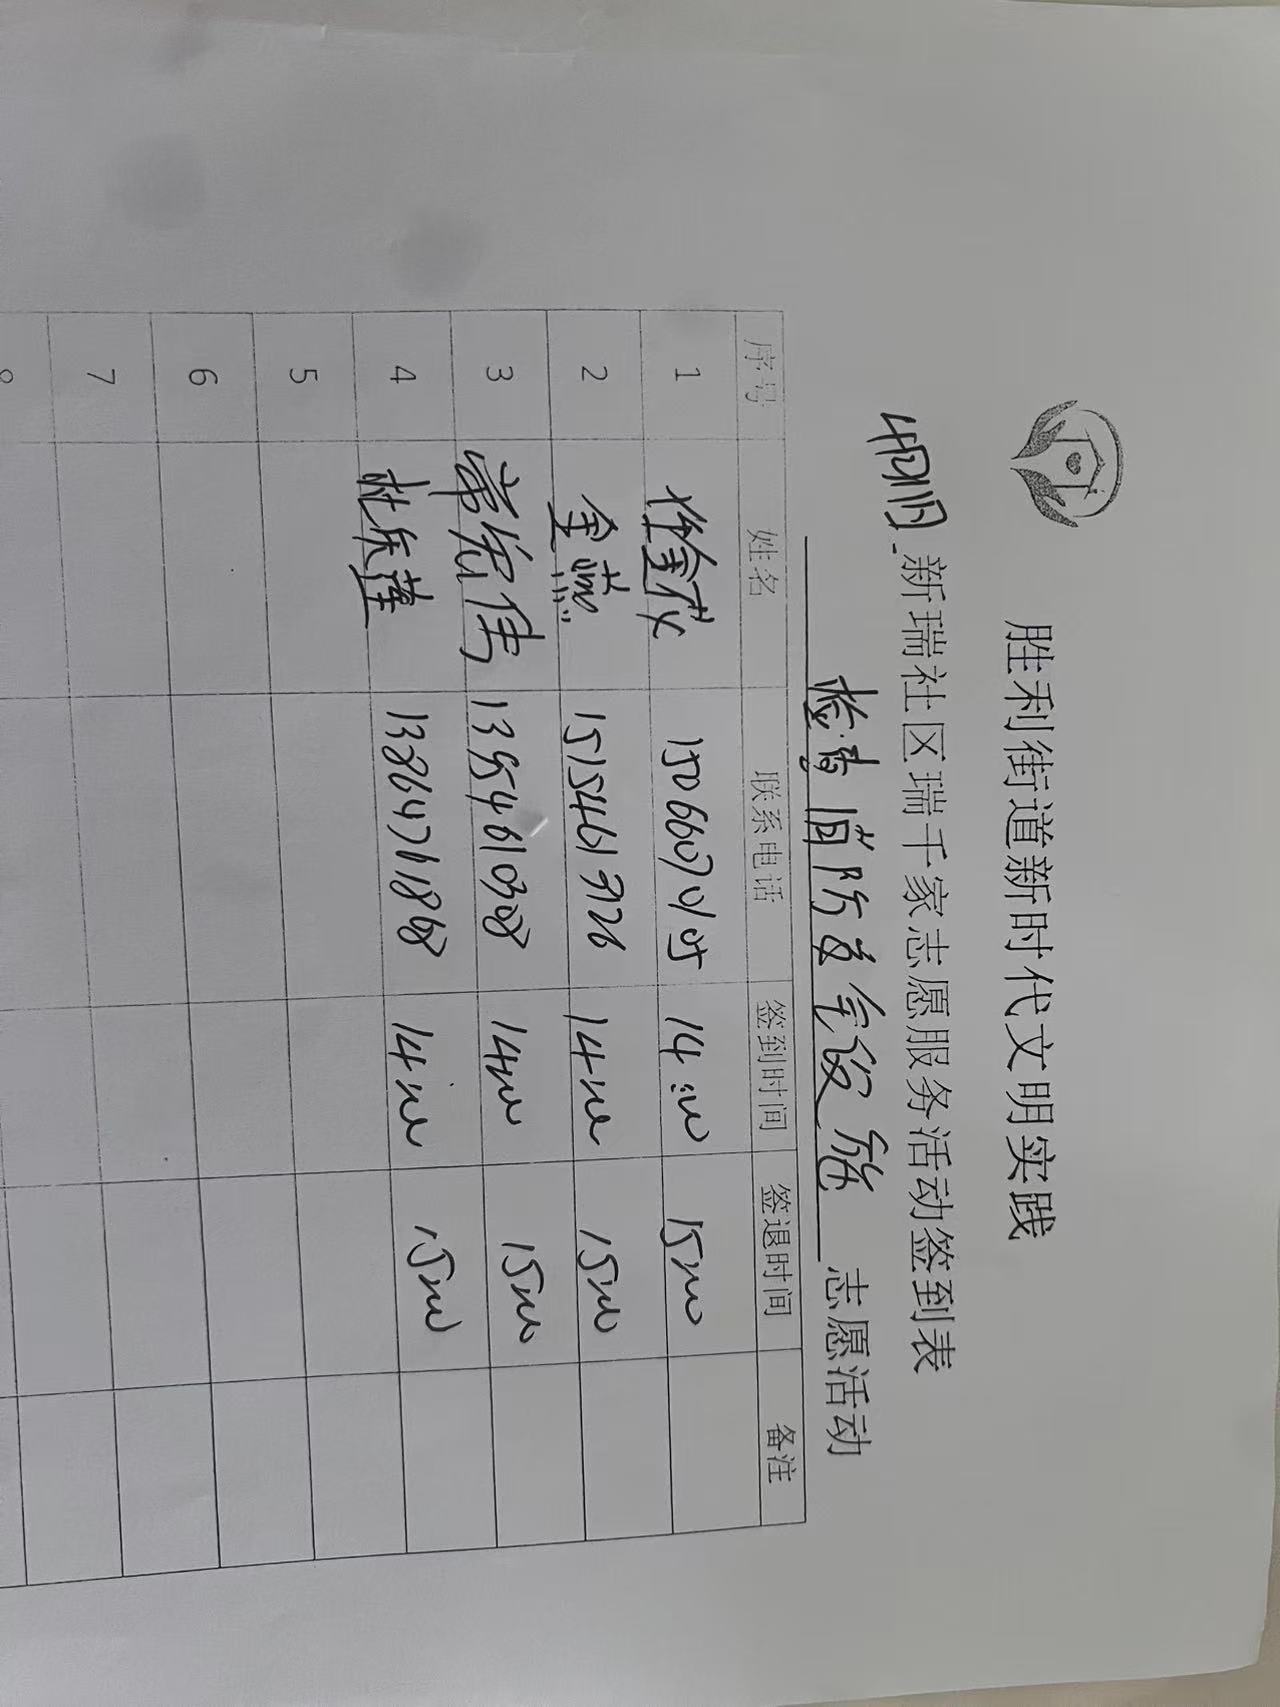 胜利街道新时代文明实践
4月11日 新瑞社区瑞千家志愿服务活动签到表
检查消防安全设施 志愿活动
序号 姓名 联系电话 签到时间 签退时间 备注
1 15066070105 14:00 15:00
2 金燕 15154619726 14:00 15:00
3 常宏伟 13954610308 14:00 15:00
4 杜乐莲 13864761868 14:00 15:00
5
6
7